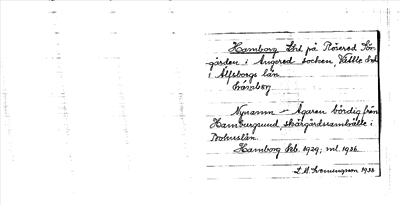 Hamborg Lht på Rösered Sör-
gården i Angered socken, Vättle hd
i Älfsborgs län.
Nynamn – Ägaren bördig från
Hamburgsund, skärgårdssamhälle i
Bohuslän.
Hamborg Seb. 1929; ml. 1936.
1936